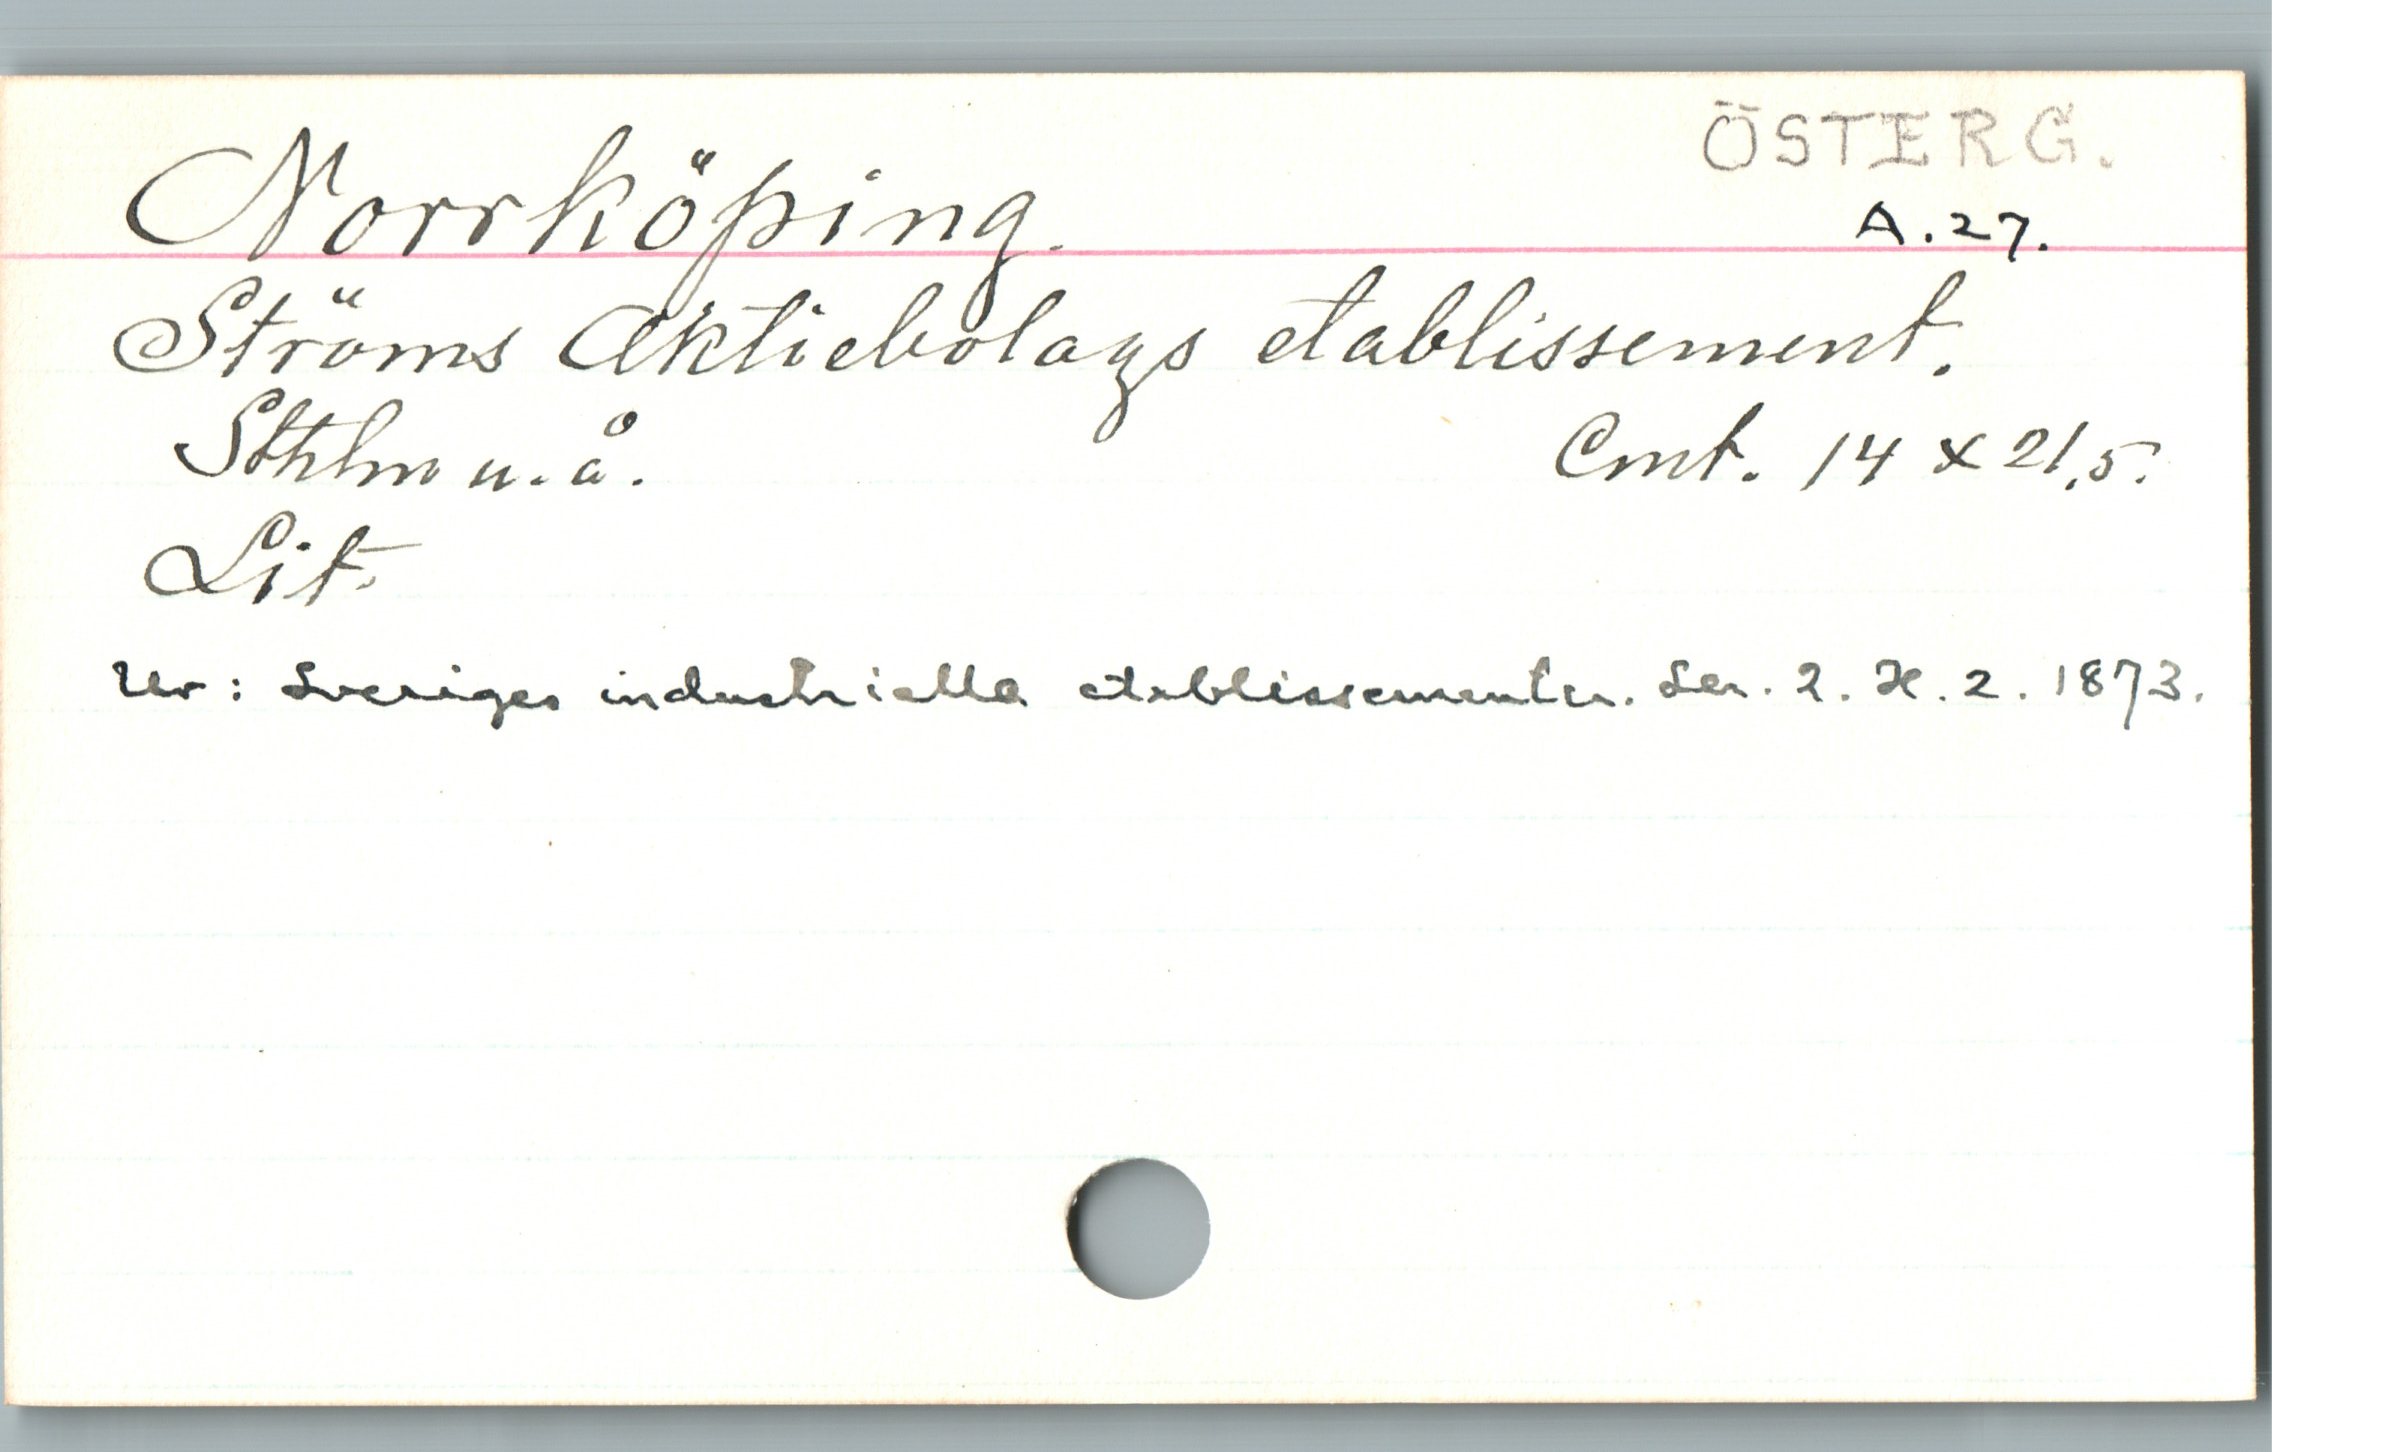 ÖSTERG.
Norrköping.
A.27.
Ströms Aktiebolags etablissement.
Sthlm u.å. Cmt. 14 x 21,5.
Lit.
Ur: Sveriges industriella etablissementer. Ser. 2. H. 2. 1873.